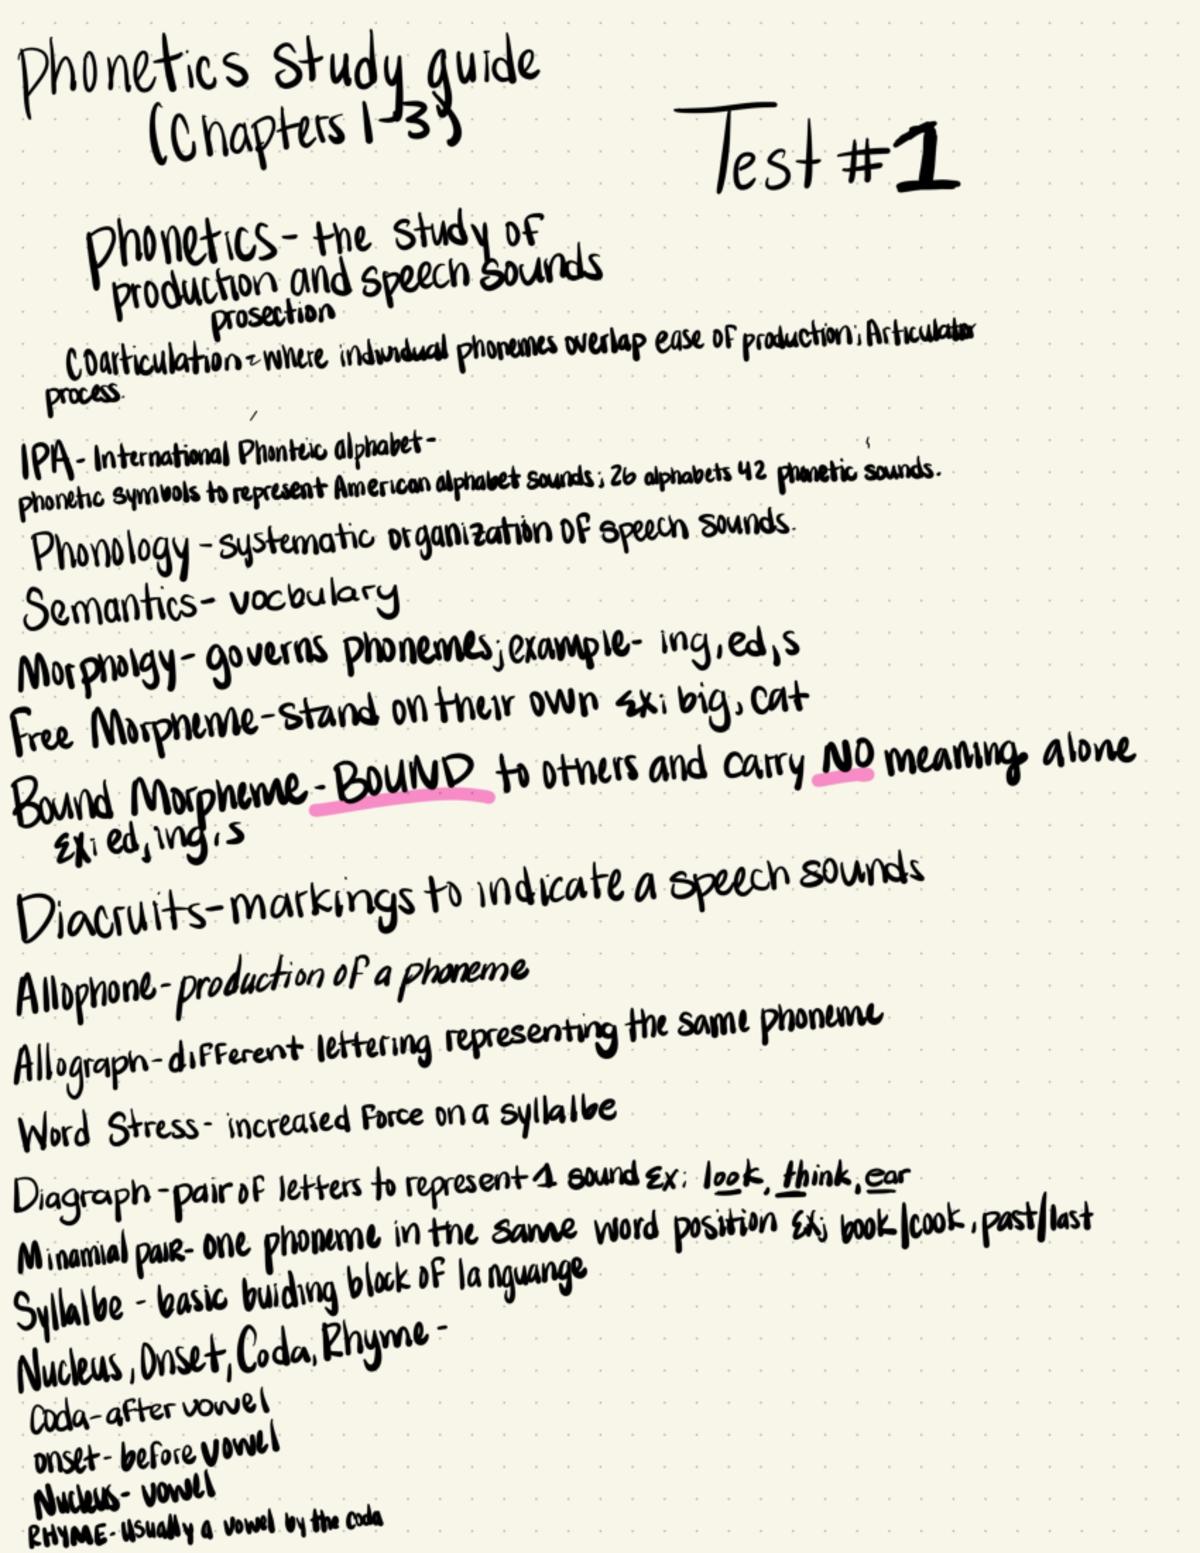 Phonetics Study guide
(Chapters 1-3)
Test #1
Phonetics- the study of
production and speech sounds
prosection
Coarticulation=where individual phonemes overlap ease of production; Articulator
process.
IPA- International Phonteic alphabet-
phonetic symbols to represent American alphabet sounds; 26 alphabets 42 phonetic sounds.
Phonology -systematic organization of speech sounds.
Semantics- vocbulary
Morpholgy- governs phonemes; example- ing, ed, s
Free Morpheme-stand on their own Ex: big, cat
Bound Morpheme- BOUND to others and carry NO meaning alone
Ex: ed, ing, s
Diacruits-markings to indicate a speech sounds
Allophone- production of a phoneme
Allograph-different lettering representing the same phoneme
Word Stress- increased Force on a syllalbe
Diagraph -pair of letters to represent 1 sound Ex: look, think, ear
Minamial pair- one phoneme in the same word position Ex; book/cook, past/last
Syllalbe - basic buiding block of languange
Nucleus, Onset, Coda, Rhyme-
Coda-after vowel
onset- before vowel
Nucleus- vowel
RHYME- Usually a vowel by the coda